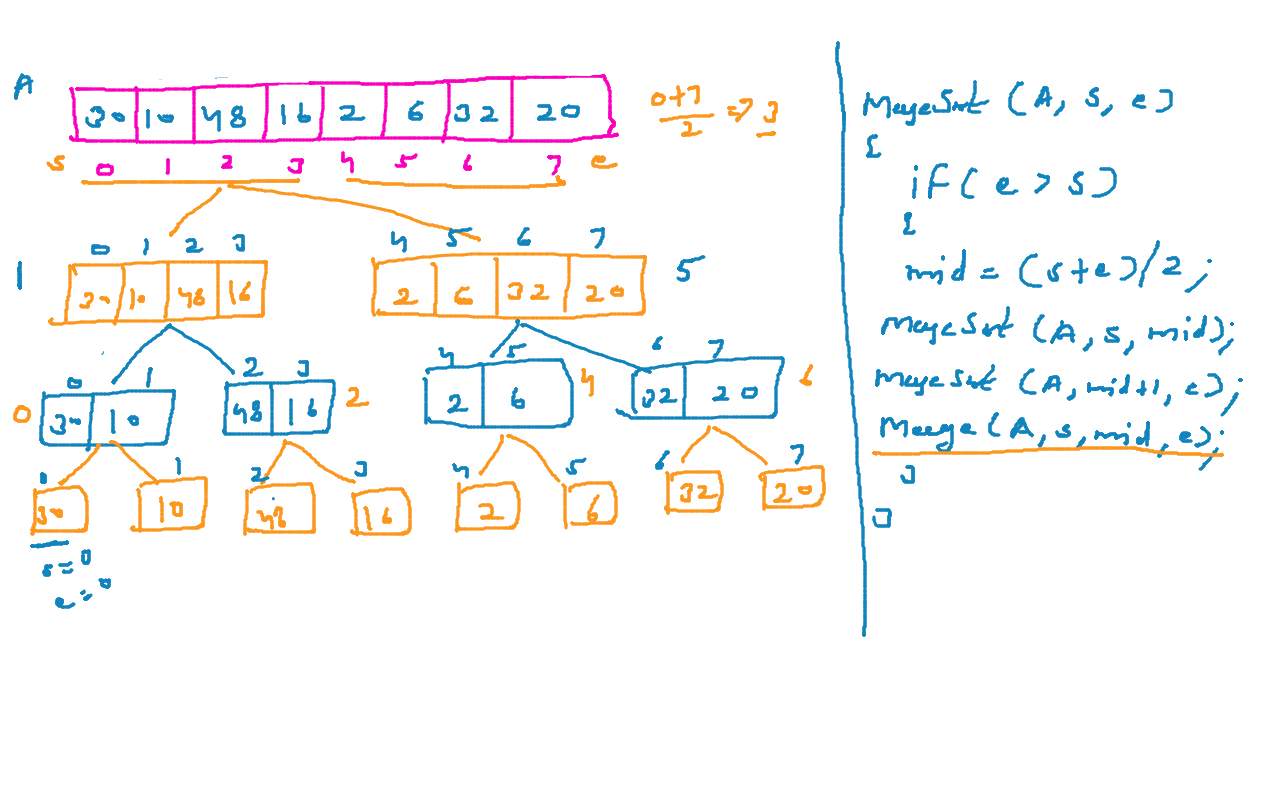 A
30 10 48 16 2 6 32 20
s 0 1 2 3 4 5 6 7 e
0+7/2 => 3
0 1 2 3
1
30 10 48 16
4 5 6 7
2 6 32 20
5
0 1
0
30 10
2 3
48 16
2
4 5
2 6
4
6 7
32 20
6
0 1 2 3 4 5 6 7
30 10 48 16 2 6 32 20
s=0
e=0
MergeSort (A, s, e)
{
if( e > s)
{
mid = (s+e)/2;
MergeSort (A, s, mid);
MergeSort (A, mid+1, e);
Merge(A, s, mid, e);
}
}